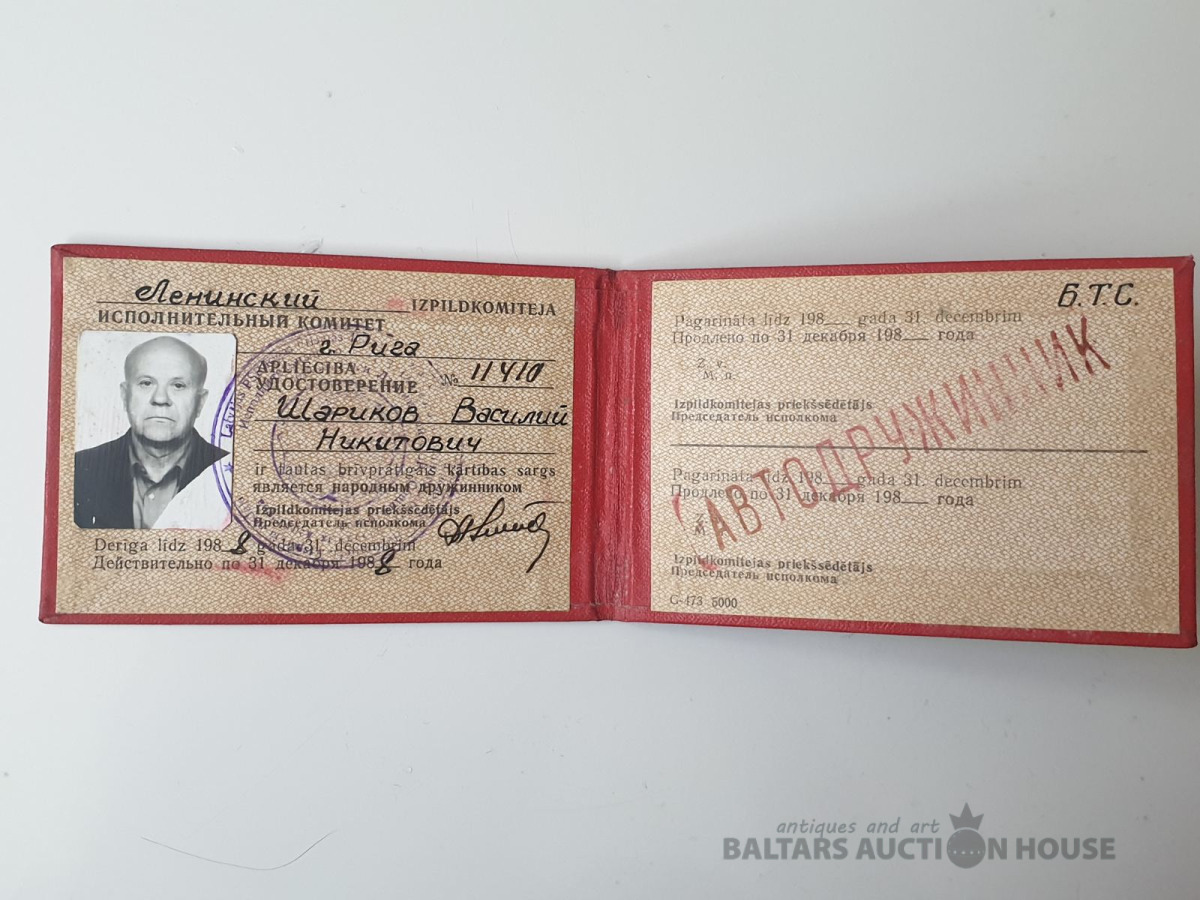 Ленинский IZPILDKOMITEJA
ИСПОЛНИТЕЛЬНЫЙ КОМИТЕТ
г. Рига
APLIECĪBA
УДОСТОВЕРЕНИЕ № 11410
Шариков Василий
Никитович
ir tautas brīvprātīgais kārtības sargs
является народным дружинником
Izpildkomitejas priekšsēdētājs
Председатель исполкома
Derīga līdz 1988 gada 31. decembrim
Действительно по 31 декабря 1988 года
Б.Т.С.
Pagarināta līdz 198 gada 31. decembrim
Продлено по 31 декабря 198 года
Z. v.
М. п.
Izpildkomitejas priekšsēdētājs
Председатель исполкома
АВТОДРУЖИННИК
Pagarināta līdz 198 gada 31. decembrim
Продлено по 31 декабря 198 года
Izpildkomitejas priekšsēdētājs
Председатель исполкома
G-473 5000
antiques and art
BALTARS AUCTION HOUSE